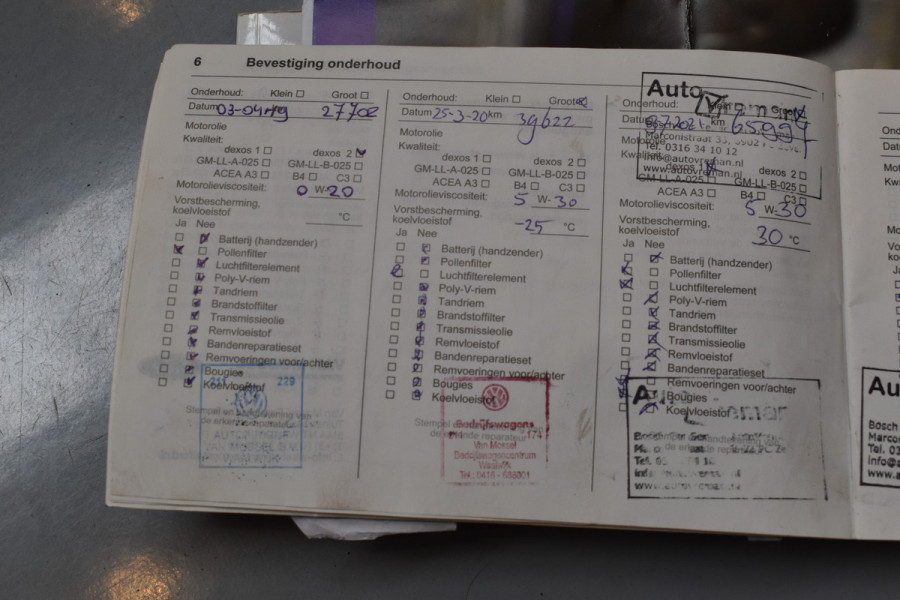 6 Bevestiging onderhoud
Onderhoud: Klein Groot
Datum 03-04-19 km 27702
Motorolie
Kwaliteit:
dexos 1 dexos 2
GM-LL-A-025 GM-LL-B-025
ACEA A3 B4 C3
Motorolieviscositeit: 0 W-20
Vorstbescherming,
koelvloeistof °C
Ja Nee
Batterij (handzender)
Pollenfilter
Luchtfilterelement
Poly-V-riem
Tandriem
Brandstoffilter
Transmissieolie
Remvloeistof
Bandenreparatieset
Remvoeringen voor/achter
Bougies
Koelvloeistof
211 229
Stempel en
de erkende reparateur
Onderhoud: Klein Groot
Datum 25-3-20 km 39622
Motorolie
Kwaliteit:
dexos 1 dexos 2
GM-LL-A-025 GM-LL-B-025
ACEA A3 B4 C3
Motorolieviscositeit: 5 W-30
Vorstbescherming,
koelvloeistof -25 °C
Ja Nee
Batterij (handzender)
Pollenfilter
Luchtfilterelement
Poly-V-riem
Tandriem
Brandstoffilter
Transmissieolie
Remvloeistof
Bandenreparatieset
Remvoeringen voor/achter
Bougies
Koelvloeistof
Bedrijfswagens
174
Van Mossel
Bedrijfswagencentrum
Waalwijk
Onderhoud: Klein Groot
Auto
Datum 2021 km 65994
Marconistraat 33,
Motorolie
Tel. 0316 34 10 12
Kwaliteit:
info@autovreman.nl
www.autovreman.nl
dexos 1 dexos 2
GM-LL-A-025 GM-LL-B-025
ACEA A3 B4 C3
Motorolieviscositeit: 5 W-30
Vorstbescherming,
koelvloeistof 30 °C
Ja Nee
Batterij (handzender)
Pollenfilter
Luchtfilterelement
Poly-V-riem
Tandriem
Brandstoffilter
Transmissieolie
Remvloeistof
Bandenreparatieset
Remvoeringen voor/achter
Bougies
Koelvloeistof
Au
Bosch
Marco
Tel. 03
info@a
www.a